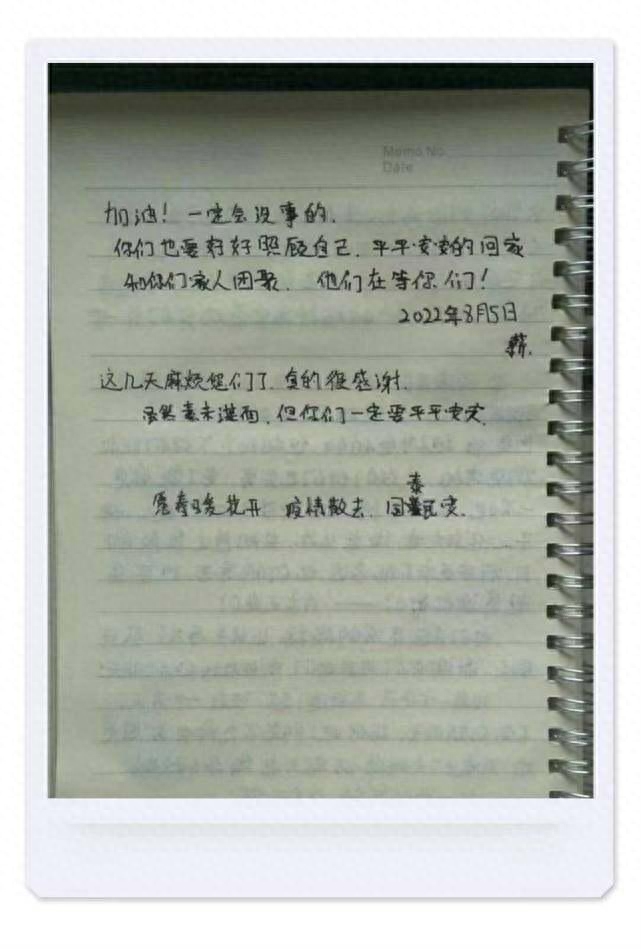 Memo No.
Date
加油！一定会没事的.
你们也要好好照顾自己. 平平安安的回家
和你们家人团聚. 他们在等你们！
2022年8月5日
这几天麻烦您们了. 真的很感谢.
虽然素未谋面, 但你们一定要平平安安.
泰
愿春暖花开 疫情散去. 国民安.